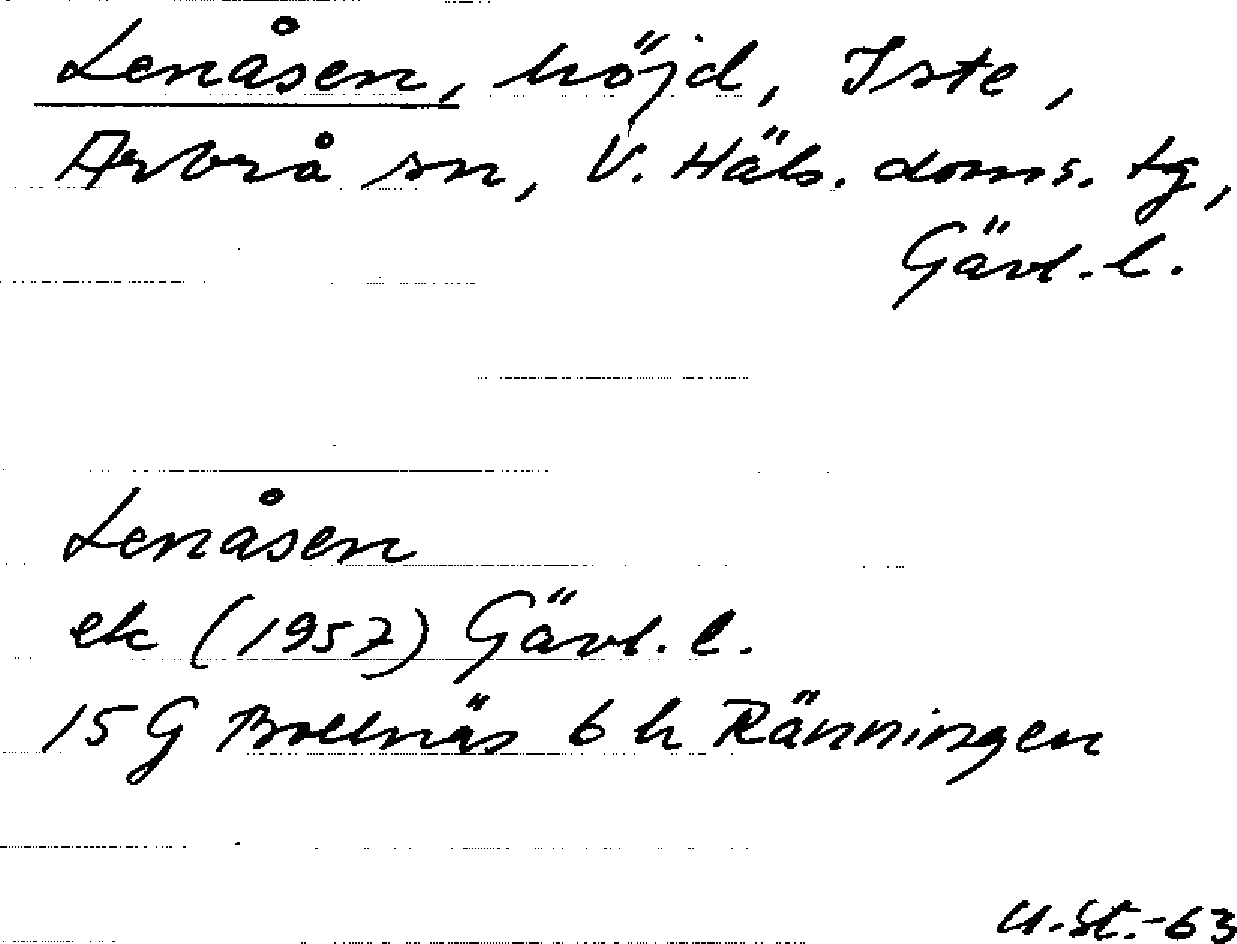 Lenåsen, höjd, Iste,
Arbrå sn, V. Häls. doms. tg,
Gävl. l.
Lenåsen
ek (1957) Gävl. l.
15 G Bollnäs 6 h Ränningen
U.St.-63